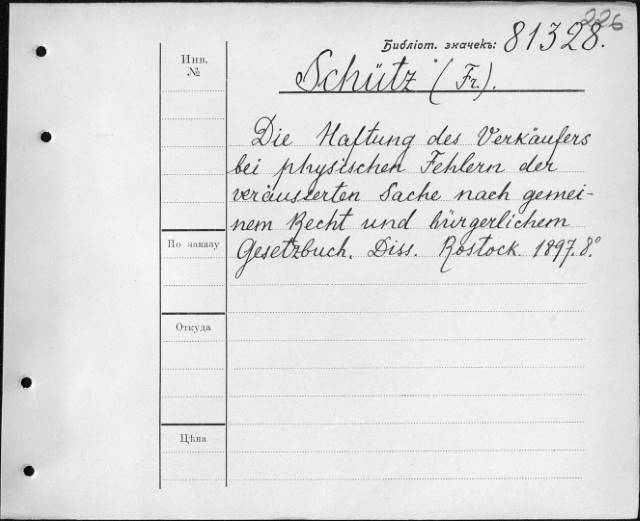 226
Библіот. значекъ: 81328.
Инв.
№
Schütz (Fr.).
Die Haftung des Verkäufers
bei physischen Fehlern der
veräusserten Sache nach gemei-
nem Recht und bürgerlichem
Gesetzbuch. Diss. Rostock. 1897. 8°
По заказу
Откуда
Цѣна